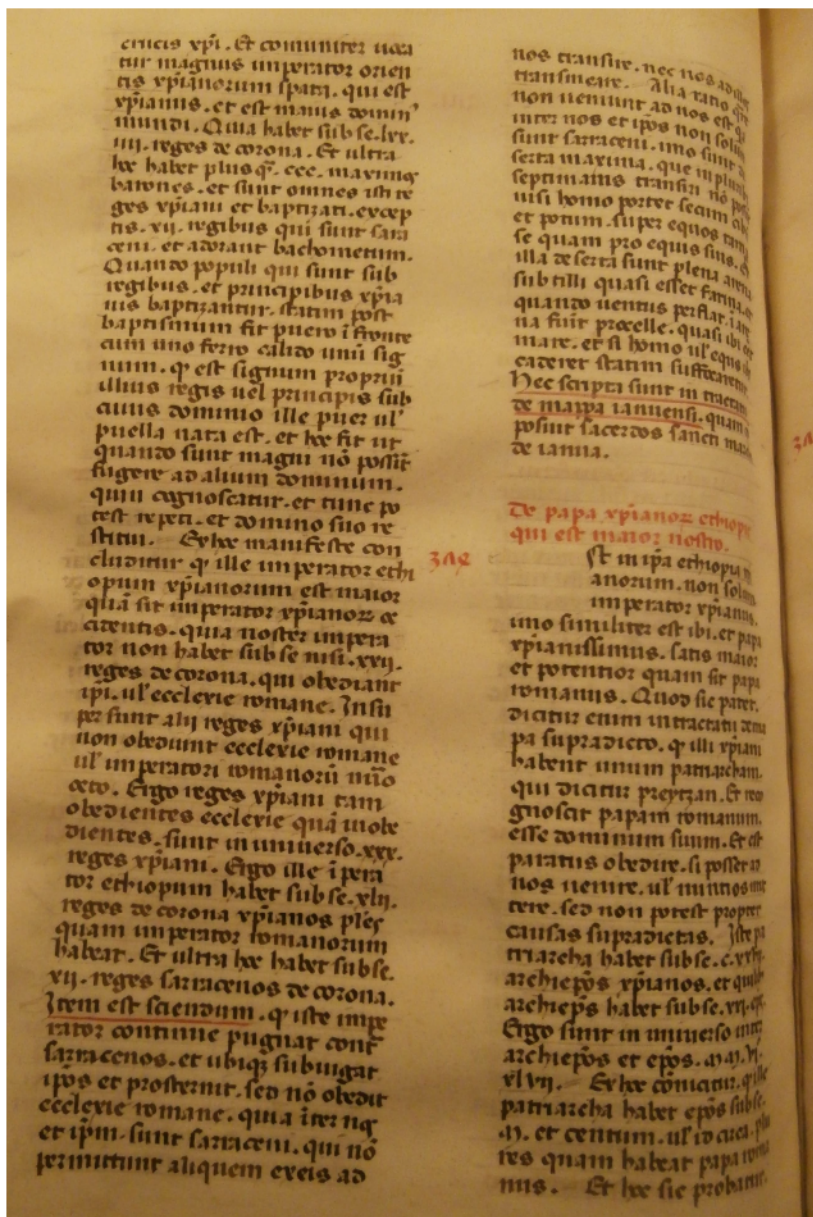 crucis xp̄i. Et comuniter uoca
tur magnus imperator orien
tis xp̄ianorum spata. qui est
xp̄ianus. et est maius domin'
mundi. Quia habet sub se. lxx.
iiii. reges de corona. Et ultra
hoc habet plus qͣ. ccc. maximos
barones. et sunt omnes isti re
ges xp̄iani et baptizati. excep
tis. xii. regibus qui sunt sara
ceni. et adorant bachometum.
Quando populi qui sunt sub
regibus. et principibus xp̄ia
nis baptizantur. statim post
baptismum fit puero ī fronte
cum uno ferro calido unū sig
num. qͥ est signum propriū
illius regis uel principis sub
cuius dominio ille puer ul'
puella nata est. et hoc fit ut
quando sunt magni nō possīt
fugere ad alium dominum.
quin cognoscatur. et tunc po
test repeti. et domino suo re
stitui. Ex hoc manifeste con
cluditur qͥ ille imperator ethi
opum xp̄ianorum est maior
quā sit imperator xp̄ianoꝝ oc
cidentis. quia noster impera
tor non habet sub se nisi. xxii.
reges de corona. qui obediant
ip̄i. ul' ecclexie romane. Insu
per sunt alij reges xp̄iani qui
non obediunt ecclexie romane
ul' imperatori romanorū
octo. Ergo reges xp̄iani tam
obedientes ecclexie quā inobe
dientes. sunt in uniuerso. xxx.
reges xp̄iani. Ergo ille īpera
tor ethiopum habet sub se. xlii.
reges de corona xp̄ianos
quam imperator romanorum
habeat. Et ultra hoc habet sub se.
xii. reges sarracenos de corona.
Item est sciendum. qͥ iste impe
rator continue pugnat cont̄
sarracenos. et ubiqꝫ subiugat
ip̄os et prosternit. sed nō obedit
ecclexie romane. quia īter nos
et ip̄m. sunt sarraceni. qui nō
permittunt aliquem ex eis ad
nos transire. nec nos ad
transmeare. Alia ratio
non ueniunt ad nos est
inter nos et ip̄os non solum
sunt sarraceni. imo sunt
serta maxima. que in pluribus
septimanis transiri nō
nisi homo portet secum
et potum. super equos tam
se quam pro equis suis.
illa deserta sunt plena arena
subtilli quasi esset farina. et
quando uentus perflat.
na fuit procelle. quasi ibi
mare. et si homo ul' equus
caderet statim suffocaretur.
Hec scripta sunt in tractatu
de mappa ianuensi. quam
posuit sacerdos sancti marci
de ianua.
De papa xp̄ianoꝝ ethiopie
qui est maior nostro.
Et in ip̄a ethiopia
anorum. non solum
imperator xp̄ianus.
imo similiter est ibi. et papa
xp̄ianissimus. satis maior
et potentior quam sit papa
romanus. Quod sic patet.
dicitur enim in tractatu de ma
pa supradicto. qͥ illi xp̄iani
habent unum patriarcham.
qui dicitur preytzan. Et reco
gnoscit papam romanum.
esse dominum suum. Et est
paratus obedire. si posset ad
nos uenire. ul' nuntios mit
tere. sed non potest propter
causas supradictas. Iste pa
triarcha habet sub se. c.
archiep̄os xp̄ianos. et
archiep̄s habet sub se. xx. ep̄os
Ergo sunt in uniuerso inter
archiep̄os et ep̄os.
xlvii. Ex hoc conuicitur. qͥ ille
patriarcha habet ep̄os sub se.
et centum. ul' id circa. plu
res quam habeat papa roma
nus. Et hoc sic probatur.